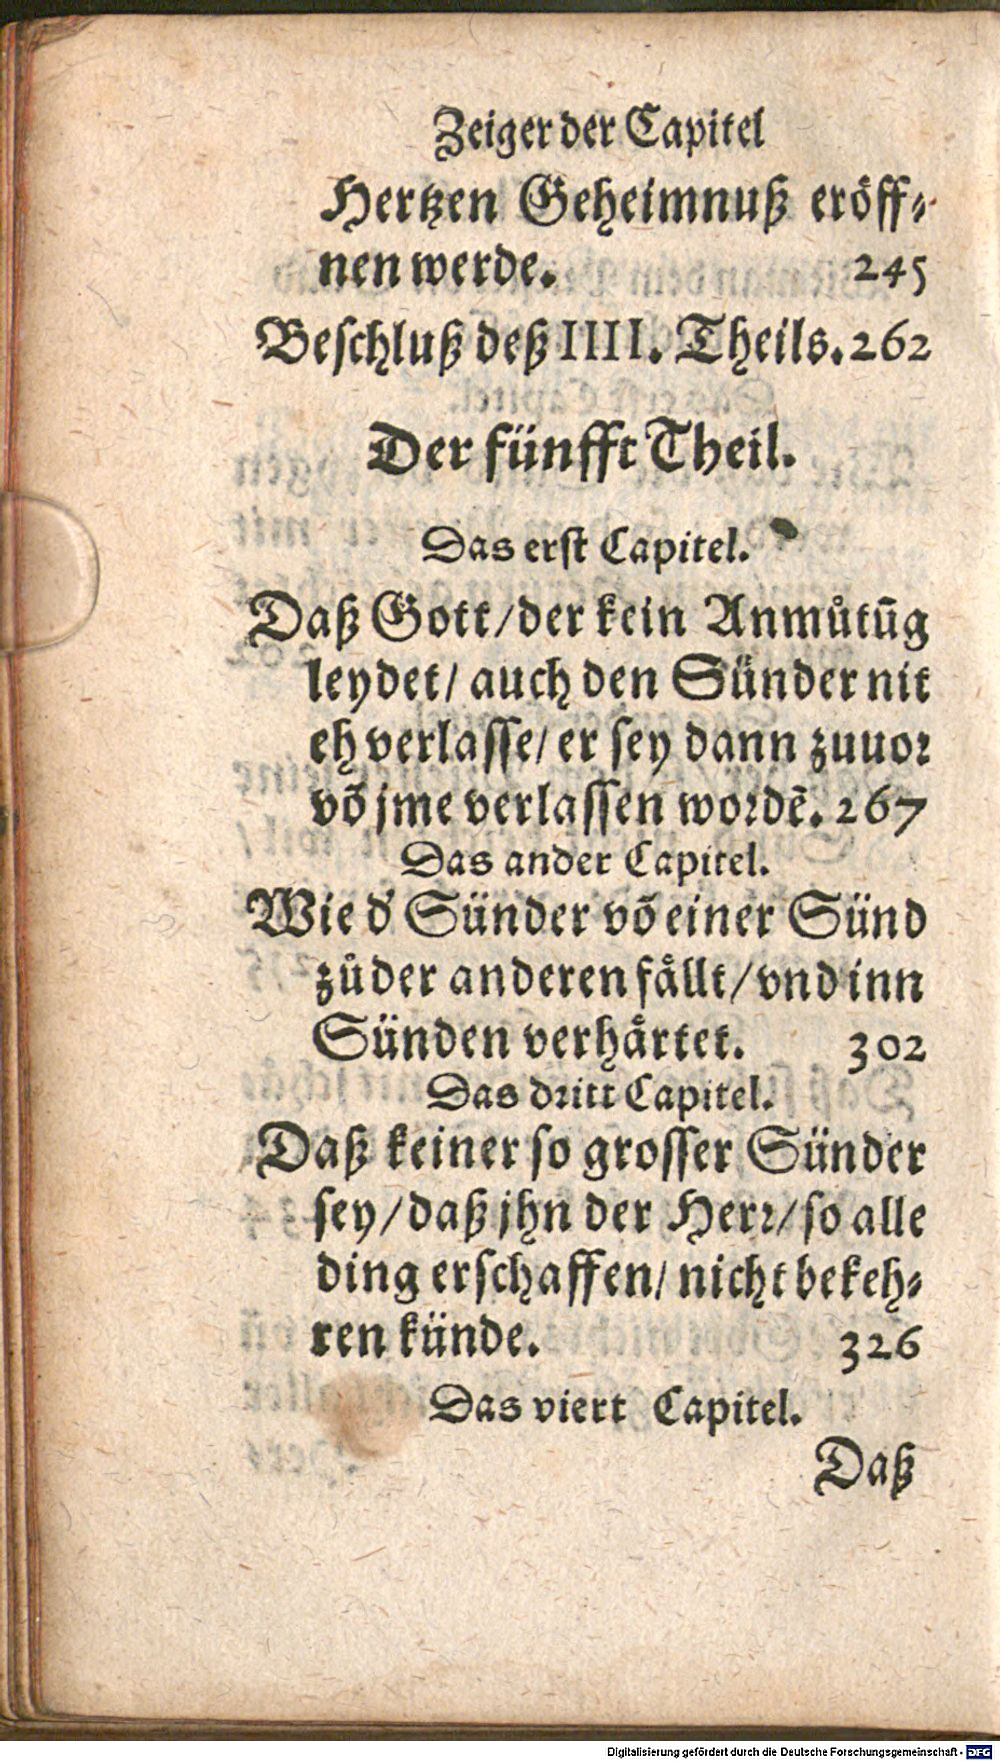 Zeiger der Capitel
Hertzen Geheimnuß eröff⸗
nen werde. 245
Beschluß deß IIII. Theils. 262
Der fünfft Theil.
Das erst Capitel.
Daß Gott/der kein Anmůtũg
leydet/ auch den Sünder nit
eh verlasse/ er sey dann zuuor
võ jme verlassen wordẽ. 267
Das ander Capitel.
Wie d' Sünder võ einer Sünd
zů der anderen fållt/vnd inn
Sünden verhårtet. 302
Das dritt Capitel.
Daß keiner so grosser Sünder
sey/daß jhn der Herr/so alle
ding erschaffen/ nicht bekeh⸗
ren künde. 326
Das viert Capitel.
Daß
Digitalisierung gefördert durch die Deutsche Forschungsgemeinschaft - DFG